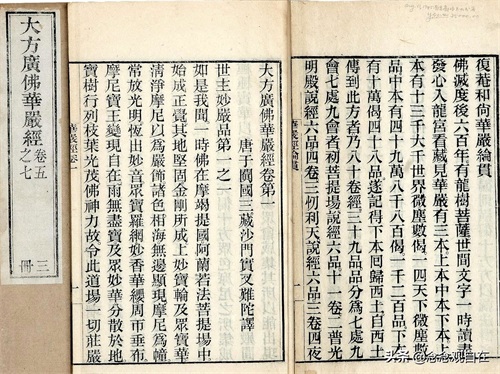 復菴和尚華嚴綸貫
佛滅度後六百年有龍樹菩薩世間文字一時讀盡
發心入龍宮看藏見華嚴有三本上本中本下本上
本有十三千大千世界微塵數偈一四天下微塵數
品中本有四十九萬八千八百偈一千二百品下本
有十萬偈四十八品遂記得下本回歸西土自西土
傳到此方者乃八十卷經三十九品品分爲七處九
會七處九會者初菩提場說經六品十一卷二普光
明殿說經六品四卷三忉利天說經六品三卷四夜
大方廣佛華嚴經卷第一
唐于闐國三藏沙門實叉難陀譯
世主妙嚴品第一之一
如是我聞一時佛在摩竭提國阿蘭若法菩提場中
始成正覺其地堅固金剛所成上妙寶輪及眾寶華
清淨摩尼以爲嚴飾諸色相海無邊顯現摩尼爲幢
常放光明恆出妙音眾寶羅網妙香華纓周帀垂布
摩尼寶王變現自在雨無盡寶及眾妙華分散於地
寶樹行列枝葉光茂佛神力故令此道場一切莊嚴
華嚴經卷一
大方廣佛華嚴經
卷五之七
三冊
头条 @念念观自在